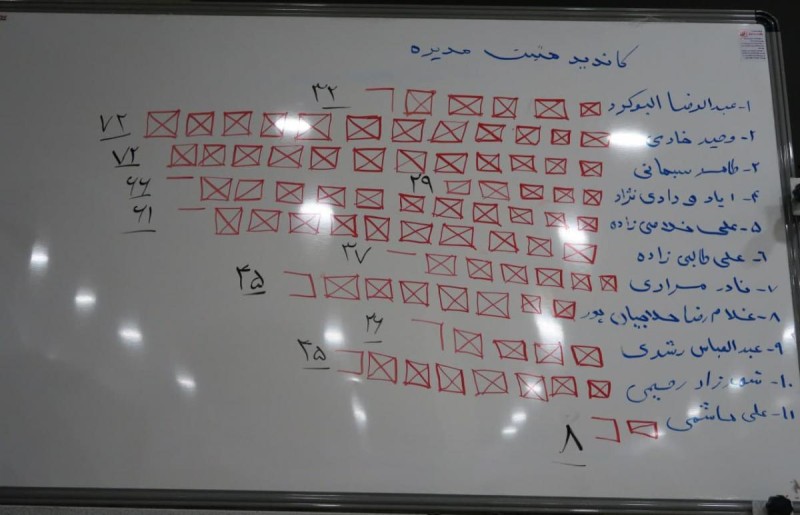 کاندید هیئت مدیره
۱- عبدالرضا البوکرد ۳۲
۲- وحید خادمی ۷۲
۳- طاهر سیمانی ۷۲
۴- ایاد مرادی نژاد ۲۹
۵- علی خادمی زاده ۶۶
۶- علی طالبی زاده ۶۱
۷- نادر مرادی ۳۷
۸- غلامرضا حلاجیان پور ۴۵
۹- عبدالعباس رشدی ۲۶
۱۰- شهرزاد رحیمی ۴۵
۱۱- علی هاشمی ۸